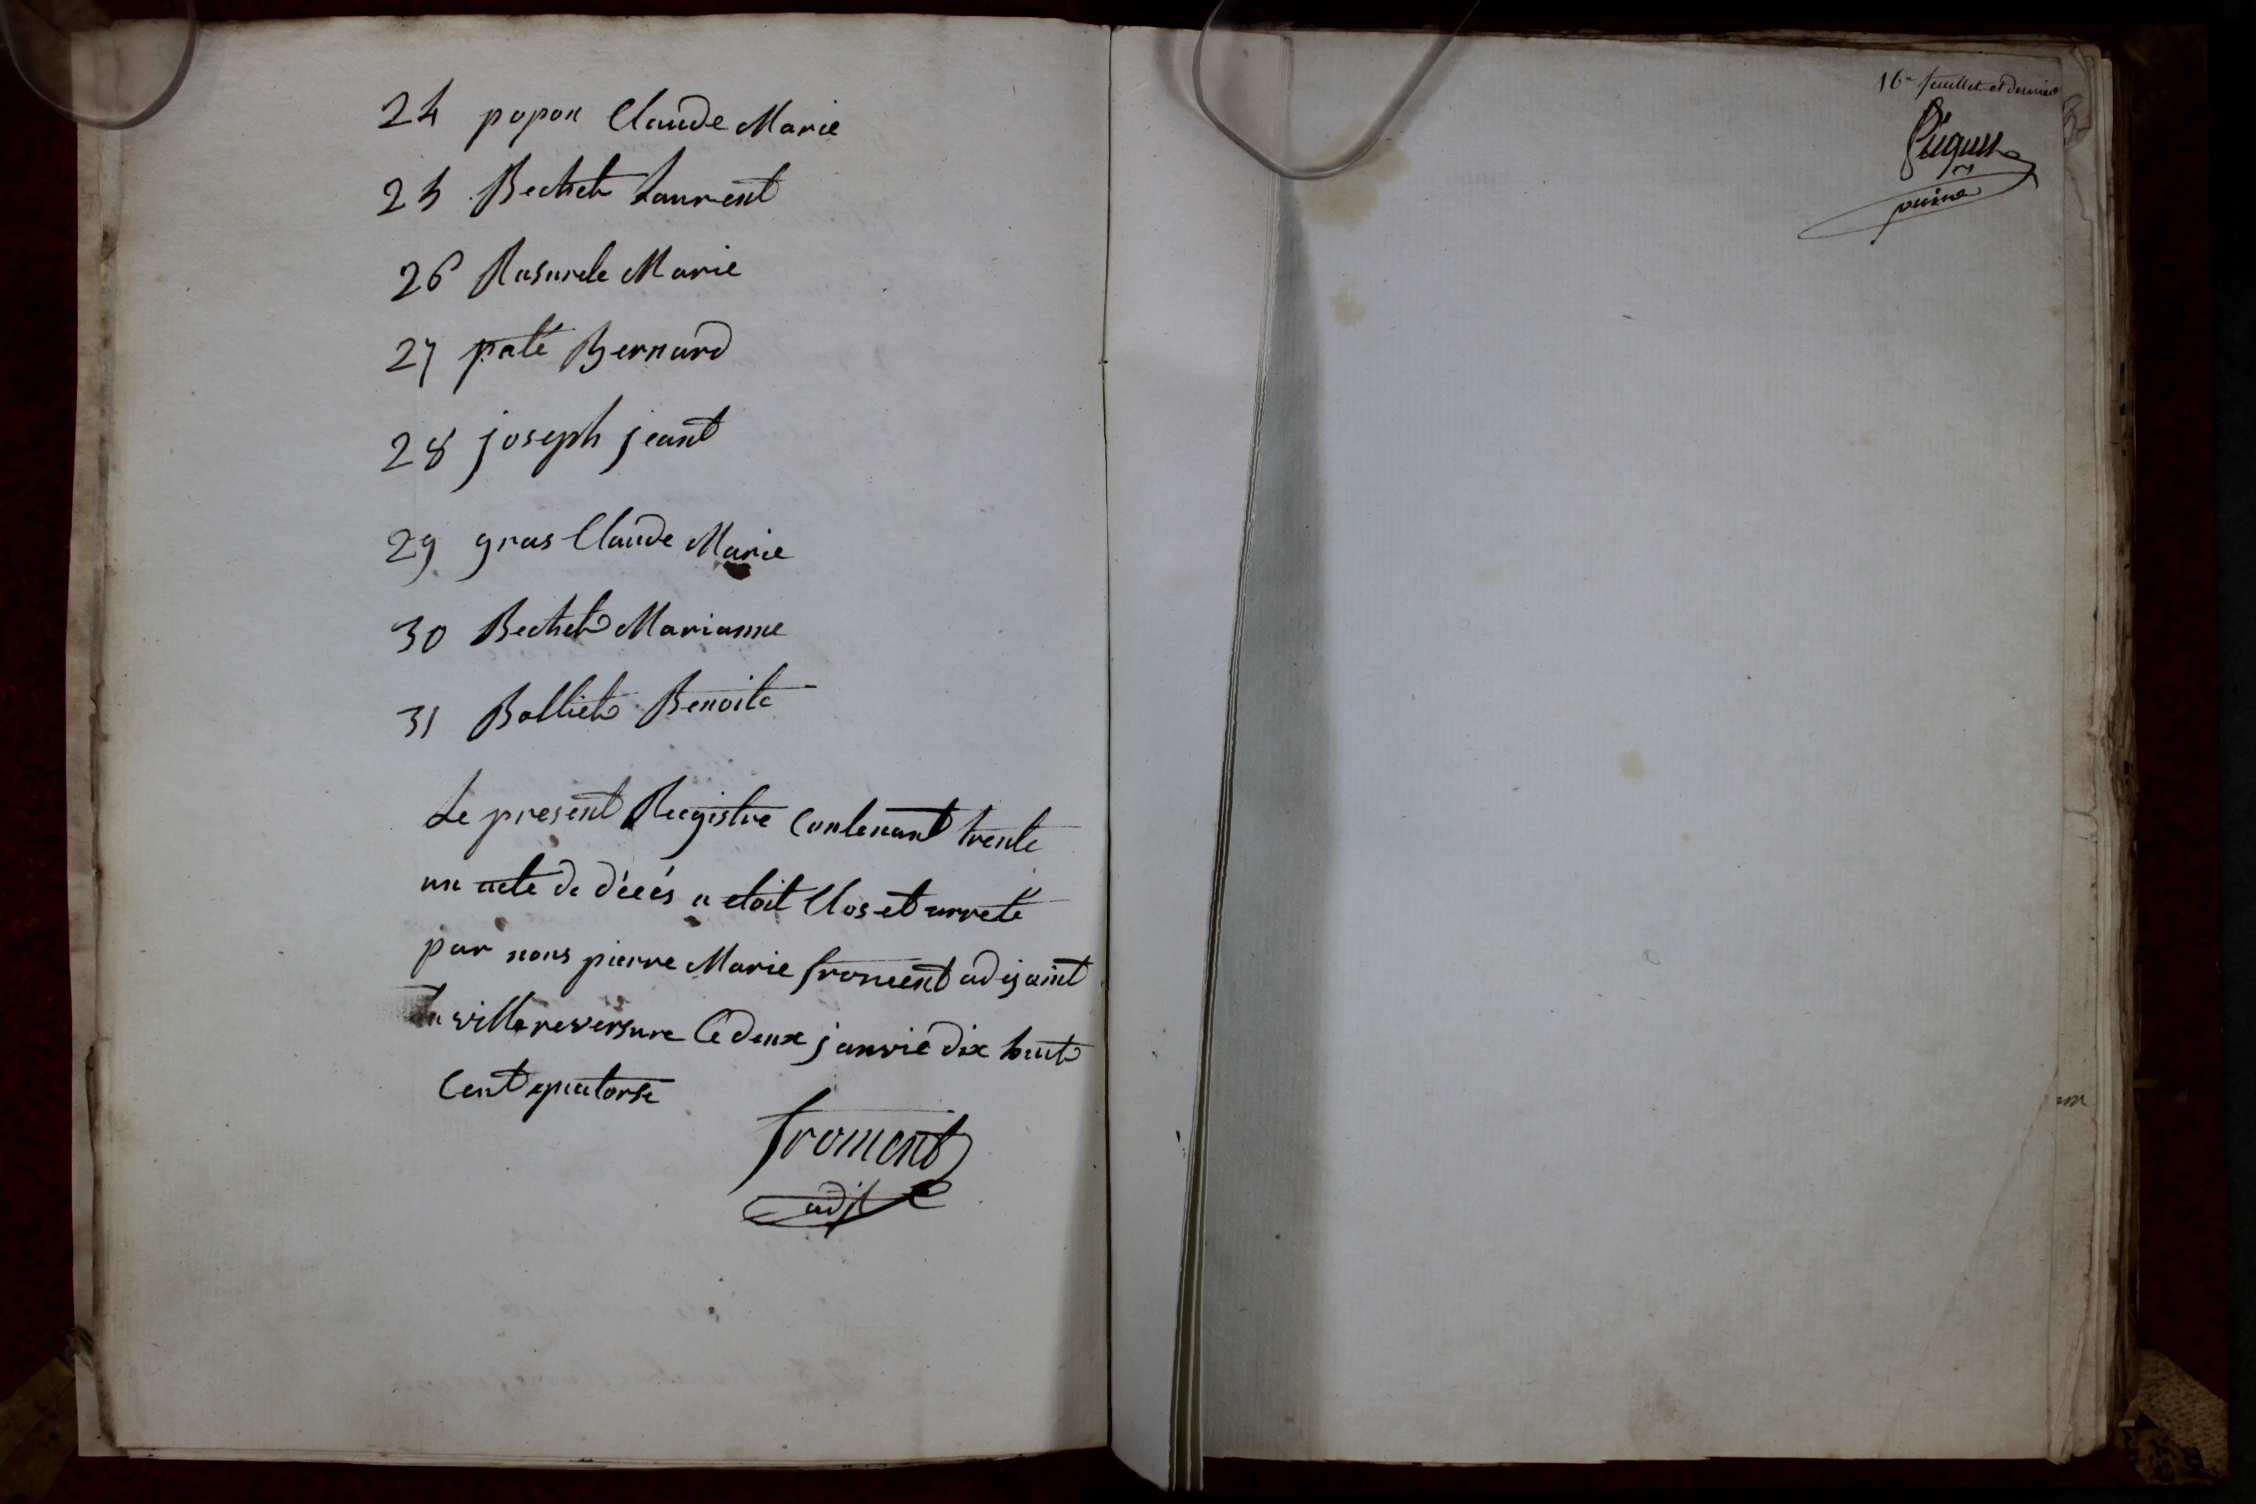 24 popon Claude Marie
25 Bechet Laurent
26 Rasurele Marie
27 paté Bernard
28 joseph jeant
29 gras Claude Marie
30 Bechet Marianne
31 Bolliet Benoite
Le present Registre Contenant trente
un acte de décés a etoit Clos et arreté
par nous pierre Marie froment adijoint
villereversure Ce deux janvié dix huit
Cent quatorse
froment
adjt
16e feuillet et dernier
puiné